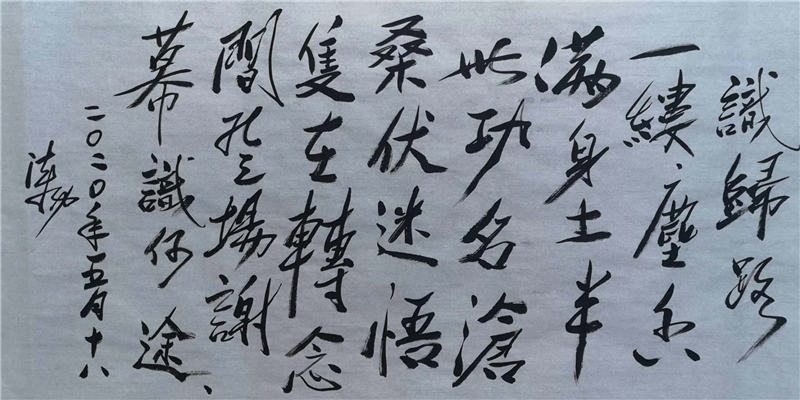 識歸路
一縷塵香
滿身土半
世功名滄
桑伏迷悟
隻在轉念
間場謝
幕識何途
二〇二〇年五月十八